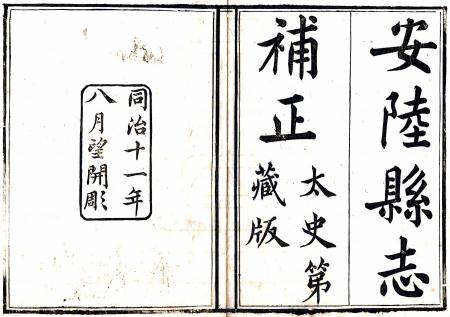 安陸縣志
補正
太史第
藏版
同治十一年
八月望開彫